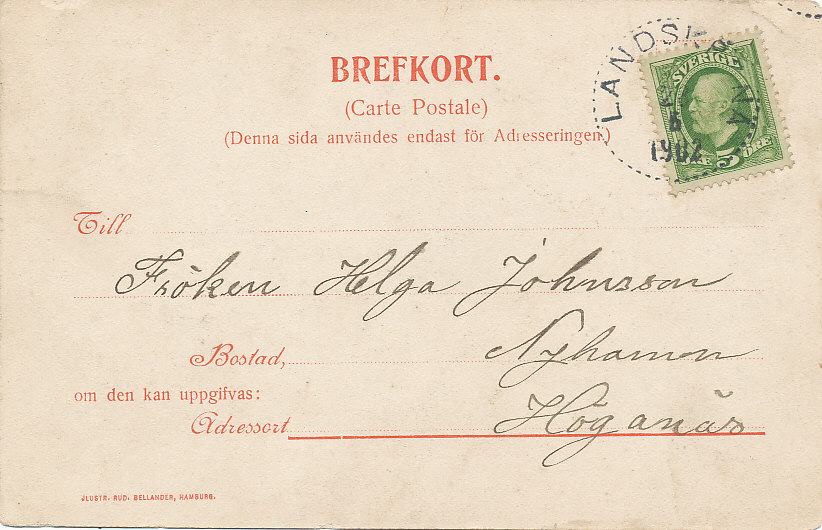 BREFKORT.
(Carte Postale)
(Denna sida användes endast för Adresseringen.)
LANDSKRONA
6
1902
SVERIGE
5 ÖRE
Till
Fröken Helga Johnsson
Bostad, Nyhamn
om den kan uppgifvas:
Adressort Höganäs
JLUSTR. RUD. BELLANDER, HAMBURG.